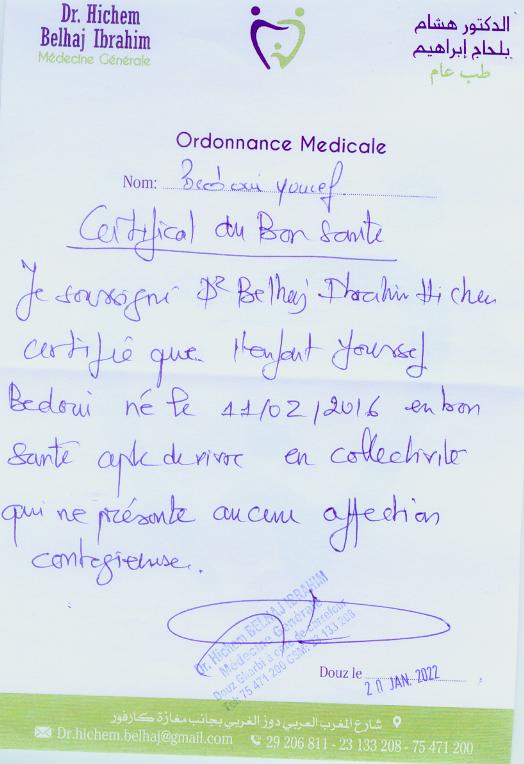 Dr. Hichem
Belhaj Ibrahim
Médecine Générale
الدكتور هشام
بلحاج إبراهيم
طب عام
Ordonnance Medicale
Nom: Bedoui Youcef
Certifical du Bon Santé
Je soussigné Dr Belhaj Ibrahim Hichem
certifié que l'enfant Youssef
Bedoui né le 11/02/2016 en bon
santé apte de vivre en collectivité
qui ne présente aucune affection
contagieuse.
Dr. Hichem BELHAJ IBRAHIM
Médecine Générale
Douz Gharbi à côté de carrefour
Tel: 75 471 200 GSM: 23 133 208
Douz le 20 JAN. 2022
شارع المغرب العربي دوز الغربي بجانب مغازة كارفور
Dr.hichem.belhaj@gmail.com 29 206 811 - 23 133 208 - 75 471 200